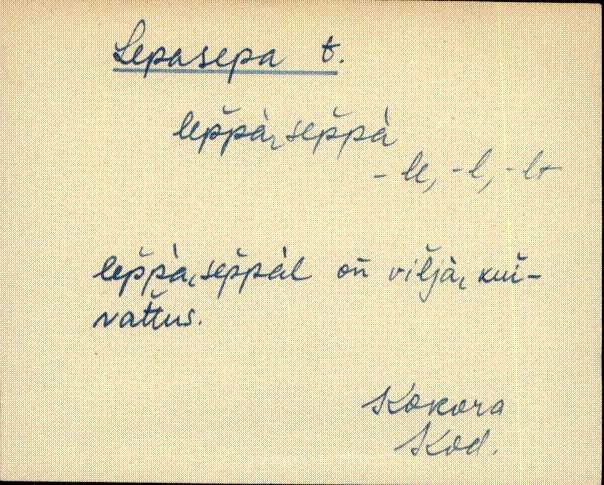 Lepasepa t.
lep̆pàₗsep̆pà
- le, -l, -lt
lep̆pàₗsep̆pàl on̆ vil̆jàₗ kui-
vat̆tus.
Kokora
Kod.